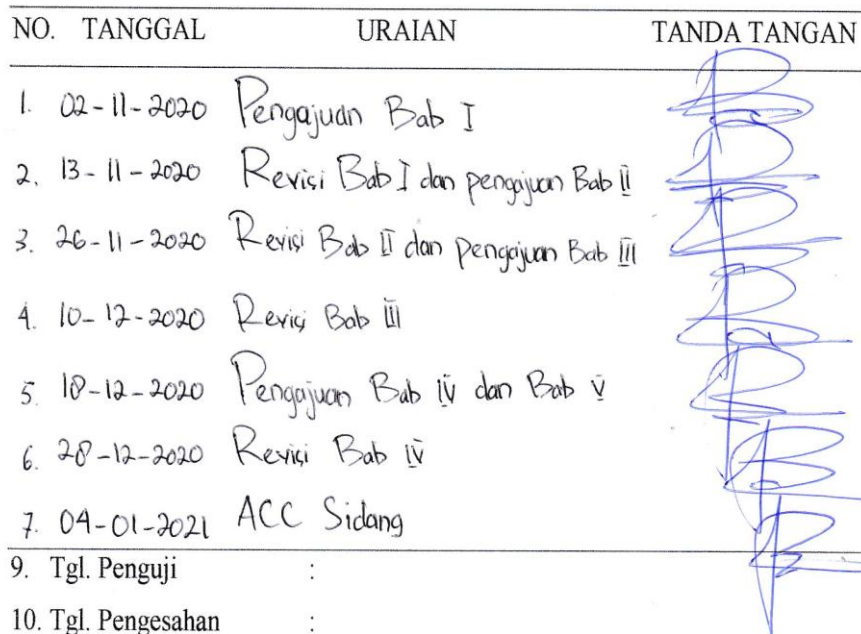 NO. TANGGAL URAIAN TANDA TANGAN
1. 02-11-2020 Pengajuan Bab I
2. 13-11-2020 Revisi Bab I dan pengajuan Bab II
3. 26-11-2020 Revisi Bab II dan pengajuan Bab III
4. 10-12-2020 Revisi Bab III
5. 18-12-2020 Pengajuan Bab IV dan Bab V
6. 28-12-2020 Revisi Bab IV
7. 04-01-2021 ACC Sidang
9. Tgl. Penguji :
10. Tgl. Pengesahan :